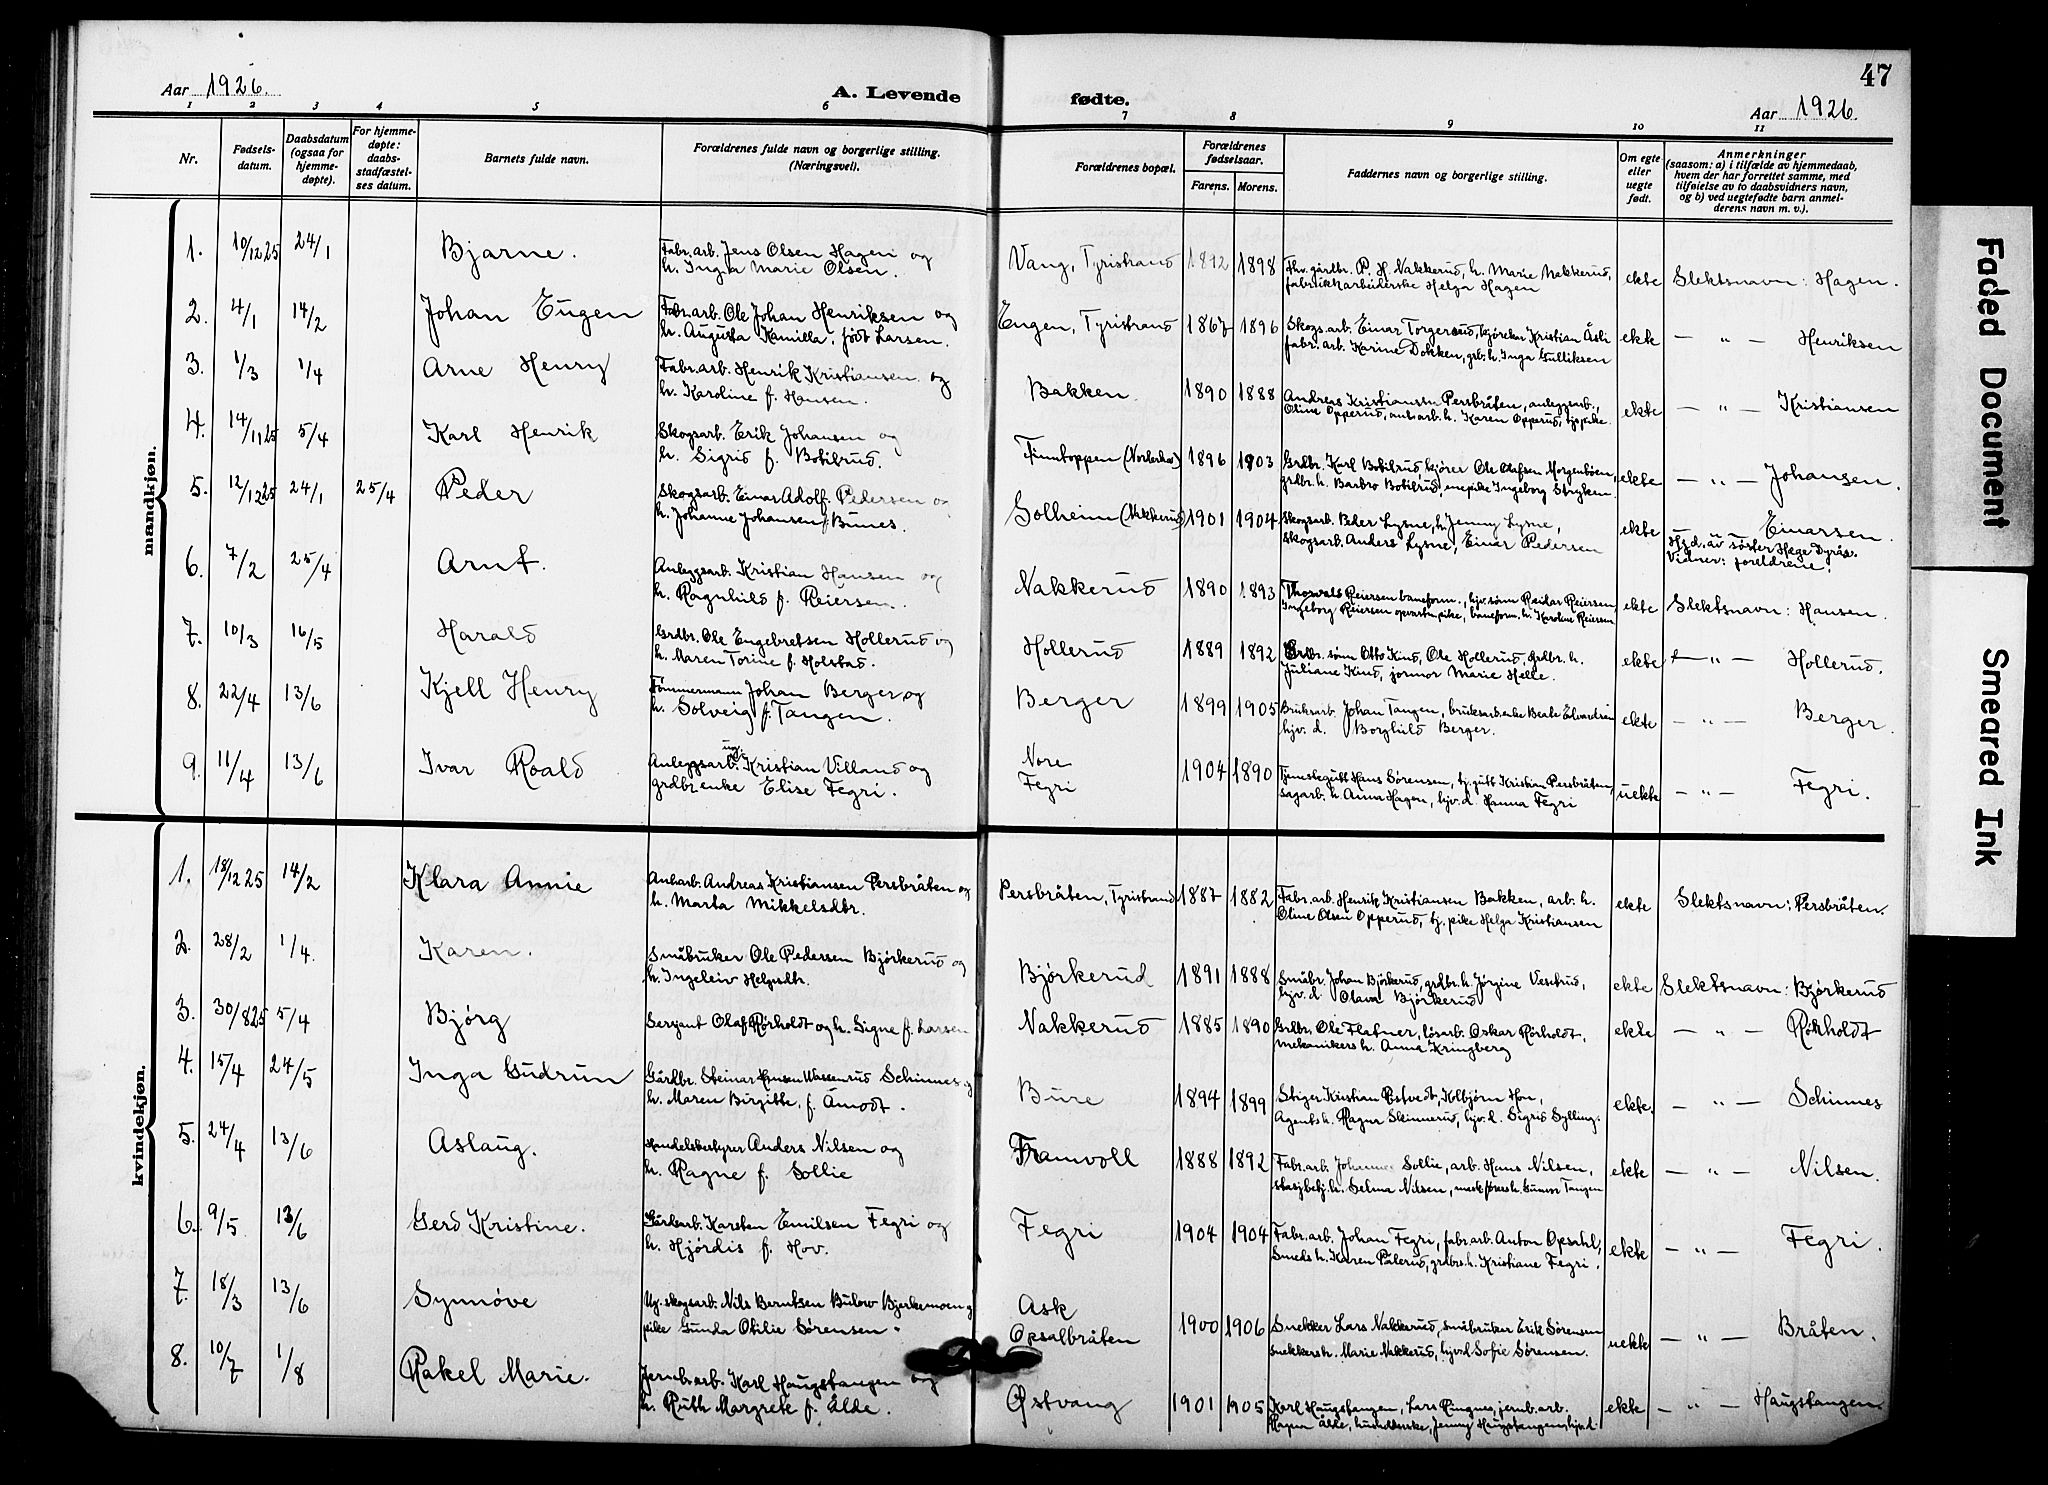 47
Aar 1926.
A. Levende fødte.
Aar 1926.
1 2 3 4 5 6 7 8 9 10 11
Nr.
Fødsels-
datum.
Daabsdatum
(ogsaa for
hjemme-
døpte).
For hjemme-
døpte:
daabs-
stadfæstel-
ses datum.
Barnets fulde navn.
Forældrenes fulde navn og borgerlige stilling.
(Næringsvei).
Forældrenes bopæl.
Forældrenes
fødselsaar.
Farens. Morens.
Faddernes navn og borgerlige stilling.
Om egte
eller
uegte
født.
Anmerkninger
(saasom: a) i tilfælde av hjemmedaab,
hvem der har forrettet samme, med
tilføielse av to daabsvidners navn,
og b) ved uegtefødte barn anmel-
derens navn m. v.).
mandkjøn.
1. 10/12 25 24/1 Bjarne. Fabr. arb. Jens Olsen Hagen og Vang, Tyristrand 1892 1898 Fhv. gårdbr. P. H. Nakkerud, h. Marie Nakkerud, ekte Slektsnavn: Hagen.
h. Inga Marie Olsen. fabrikkarbeiderske Helga Hagen
2. 4/1 14/2 Johan Eugen Fabr. arb. Ole Johan Henriksen og Engen, Tyristrand 1867 1896 Skogs. arb. Einar Torgersrud, kjørekar Kristian Åsli ekte — " — Henriksen
h. Augusta Kamilla, født Larsen. fabr. arb. Karine Dokken, grb. h. Inga Gulliksen
3. 1/3 1/4 Arne Henry Fabr. arb. Henrik Kristiansen og Bakken. 1890 1888 Andreas Kristiansen Persbråten, anleggsarb., ekte — " — Kristiansen
h. Karoline f. Hansen. Oline Opperud, anl. arb. h. Karen Opperud, tjs. pike.
4. 14/11 25 5/4 Karl Henrik Skogsarb. Erik Johansen og Finntoppen 1896 1903 Grdbr. Karl Botilrud, kjører Ole Olafsen Morgenbøen, ekte — " — Johansen.
h. Sigrid f. Botilrud. grdbr. h. Barbro Botilrud, Ingeborg Stryken.
5. 12/12 25 24/1 25/4 Peder Skogsarb. Einar Adolf Pedersen og Solheim (Nakkerud) 1901 1904 Skogsarb. Peder Lysne, h. Jenny Lysne, ekte — " — Einarsen.
h. Johanne Johansen f. Bunes. skogsarb. Anders Lysne, Einar Pedersen Hj.d. av søster Hæge Dyrås. Vidner: foreldrene.
6. 7/2 25/4 Arnt. Anleggsarb. Kristian Hansen og Nakkerud 1890 1893 Thorvald Reiersen baneform., hjv. sønn Reidar Reiersen, ekte Slektsnavn: Hansen.
h. Ragnhild f. Reiersen. Ingeborg Reiersen opvartn. pike, baneform. h. Karoline Reiersen
7. 10/3 16/5 Harald Grdbr. Ole Engebretsen Hollerud og Hollerud 1889 1892 Grdbr. sønn Otto Kind, Ole Hollerud, grdbr. h. ekte — " — Hollerud.
h. Maren Torine f. Holstad. Juliane Kind, jormor Marie Helle.
8. 22/4 13/6 Kjell Henry Tømmermann Johan Berger og Berger 1899 1905 Bruksarb. Johan Tangen, bruksarb. enke Beate Edvardsen ekte — " — Berger.
h. Solveig f. Tangen. hjv. d. Borghild Berger.
9. 11/4 13/6 Ivar Roald Anleggsarb. ug. Kristian Villand og Nore 1904 1890 Tjenestegutt Hans Sørensen, tj. gutt Kristian Persbråten, uekte — " — Fegri.
grdbr. enke Elise Fegri. Fegri sagarb. h. Anna Hagen, hjv. d. Hanna Fegri
kvindekjøn.
1. 18/12 25 14/2 Klara Annie Anl. arb. Andreas Kristiansen Persbråten og Persbråten, Tyristrand 1887 1882 Fabr. arb. Henrik Kristiansen Bakken, arb. h. ekte Slektsnavn: Persbråten.
h. Marta Mikkelsdtr. Oline Olsen Opperud, tj. pike Helga Kristiansen
2. 28/2 1/4. Karen. Småbruker Ole Pedersen Bjørkerud og Bjørkerud 1891 1888 Småbr. Johan Bjørkerud, grdbr. h. Jørgine Vestrud, ekte Slektsnavn: Bjørkerud
h. Ingeleiv Helgesdtr. hjv. d. Olava Bjørkerud
3. 30/8 25 5/4 Bjørg Sersjant Olaf Rørholdt og h. Signe f. Larsen Nakkerud 1885 1890 Grdbr. Ole Flatner, løsarb. Oskar Rørholdt, ekte — " — Rørholdt
mekanikers h. Anna Kringberg
4. 15/4 24/5 Inga Gudrun Gårdbr. Steinar Hansen Wassenrud Schinnes og Bure 1894 1899 Stiger Kristian Østvedt, Kolbjørn Hov, ekte. — " — Schinnes
h. Maren Birgitte, f. Åmodt. Agents h. Ragna Skinnerud, hjv. d. Sigrid Sylling.
5. 24/4 13/6 Aslaug. Handelsbestyrer Anders Nilsen og Framvoll 1888 1892 Fabr. arb. Johannes Sollie, arb. Hans Nilsen, ekte — " — Nilsen.
h. Ragne f. Sollie stasj. betj. h. Selma Nilsen, Gunvor Tangen
6. 9/5 13/6 Gerd Kristine. Gårdarb. Karsten Emilsen Fegri og Fegri 1904 1904 Fabr. arb. Johan Fegri, fabr. arb. Anton Opsahl, ekte — " — Fegri.
h. Hjørdis f. Hov. Smeds h. Karen Pålerud, grdbrs. h. Kristiane Fegri.
7. 18/3 13/6 Synnøve Ug. skogsarb. Nils Berntsen Bulow Bjerkemoen og Ask 1900 1906 Snekker Lars Nakkerud, småbruker Erik Sørensen uekte — " — Bråten.
pike Gunda Otilie Sørensen. Opsalbråten snekkers h. Marie Nakkerud, hjv. d Sofie Sørensen.
8. 10/7 1/8 Rakel Marie. Jernb. arb. Karl Haugstangen og Østvang 1901 1905 Karl Haugstangen, Lars Ringnes, jernb. arb. ekte — " — Haugstangen.
h. Ruth Margrete f. Ålde. Hagen Ålde, husholderske, Jenny Haugstangen, hjv. d.
Faded Document
Smeared Ink